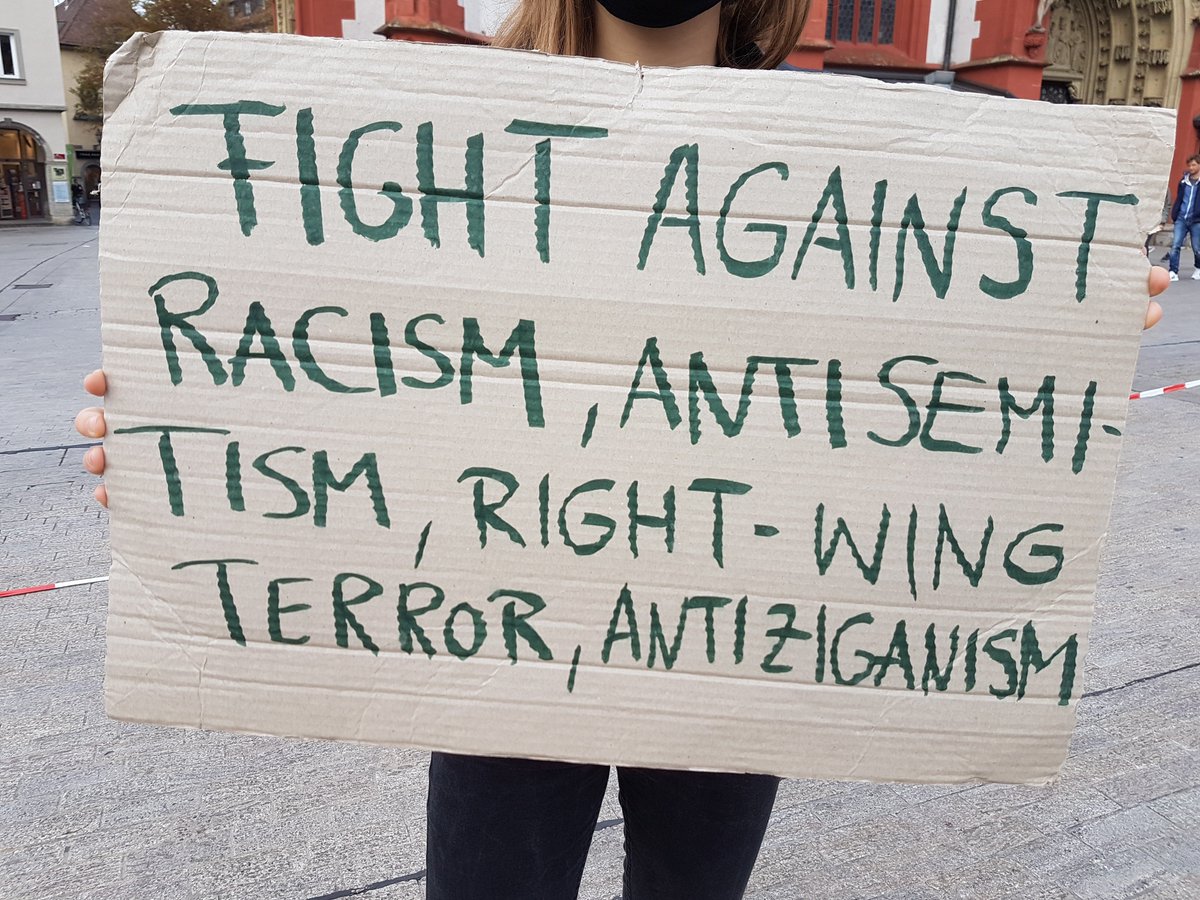 FIGHT AGAINST
RACISM, ANTISEMI-
TISM, RIGHT-WING
TERROR, ANTIZIGANISM